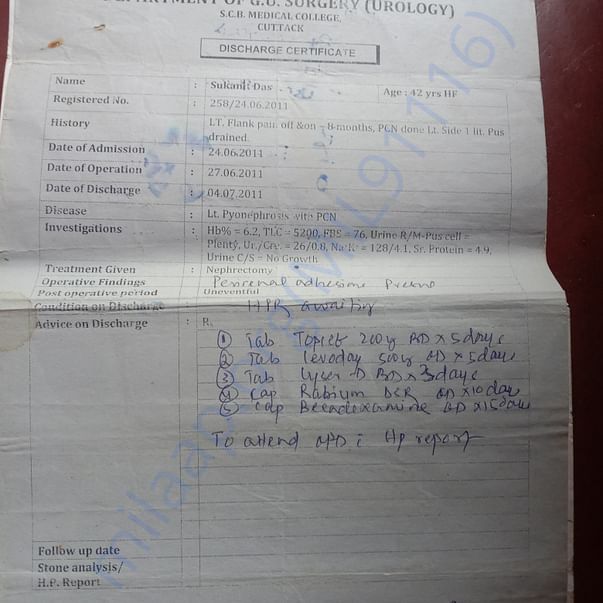 DEPARTMENT OF G.U. SURGERY (UROLOGY)
S.C.B. MEDICAL COLLEGE,
CUTTACK
DISCHARGE CERTIFICATE
Name : Sukanti Das Age : 42 yrs HF
Registered No. : 258/24.06.2011
History : LT. Flank pain off &on – 8 months, PCN done Lt. Side 1 lit. Pus
drained.
Date of Admission : 24.06.2011
Date of Operation : 27.06.2011
Date of Discharge : 04.07.2011
Disease : Lt. Pyonephrosis with PCN
Investigations : Hb% = 6.2, TLC = 5200, FBS = 76, Urine R/M-Pus cell =
Plenty, Ur./Cre. = 26/0.8, Na+K+ = 128/4.1, Sr. Protein = 4.9,
Urine C/S = No Growth
Treatment Given : Nephrectomy
Operative Findings : Perirenal adhesions
Post operative period : Uneventful
Condition on Discharge : HPR awaiting
Advice on Discharge : R
① Tab 200g BD x 5 days
② Tab Levoday 500g OD x 5 days
③ Tab Lyser D BD x 3 days
④ Cap Rabium DSR OD x 10 day
⑤ Cap Becadexamine OD x 15 days
To attend OPD c HP report
Follow up date
Stone analysis/
H.P. Report
milaap